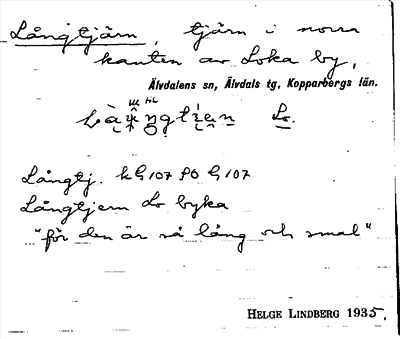 Långtjärn, tjärn i norra
kanten av Loka by,
Älvdalens sn, Älvdals tg, Kopparbergs län.
Lo.
Långtj. k G 107 på G 107
Långtjern Lo byka
"för den är så lång och smal"
HELGE LINDBERG 1935.